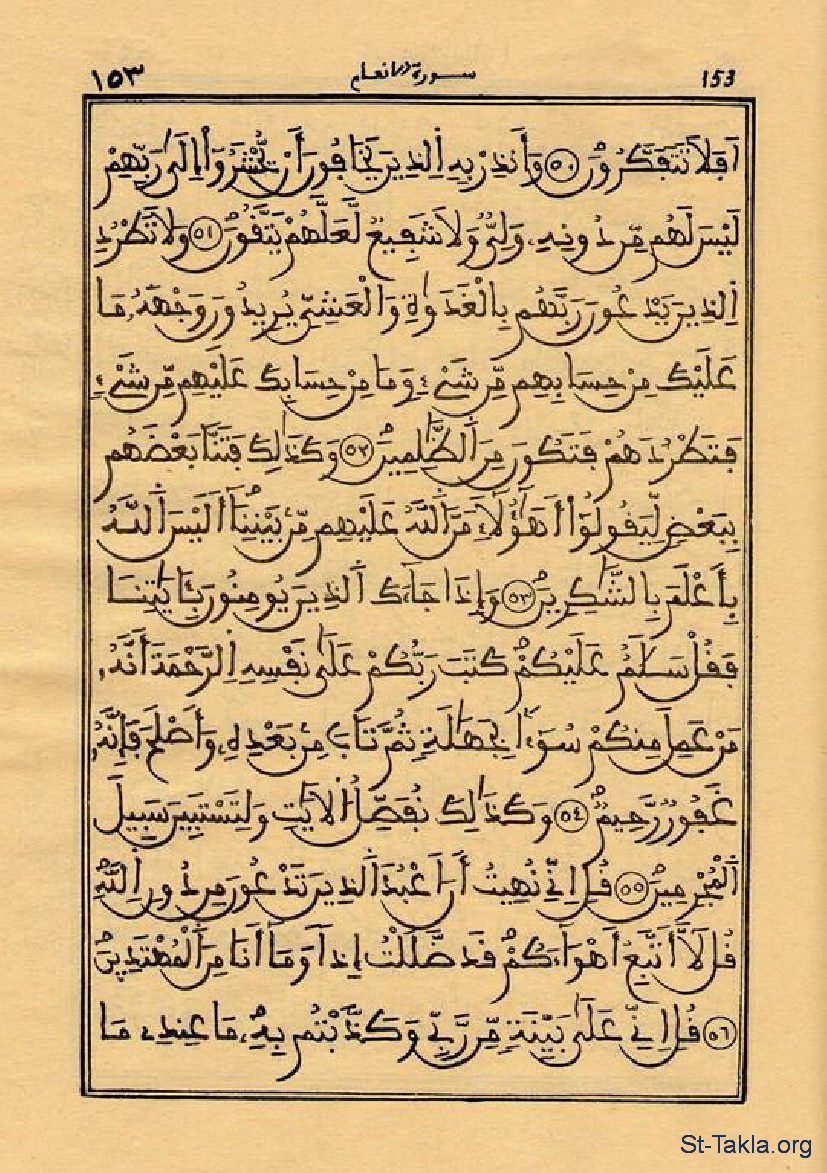 ١٥٣ سورة الانعام 153
اَفَلَا تَتَفَكَّرُونَ ٥٠ وَأَنذِرْ بِهِ اِلذِينَ يَخَافُونَ أَنْ يُّحْشَرُوٓاْ إِلَىٰ رَبِّهِمْ
لَيْسَ لَهُم مِّن دُونِهِۦ وَلِيٌّ وَلَا شَفِيعٌ لَّعَلَّهُمْ يَتَّقُونَ ٥١ وَلَا تَطْرُدِ
اِلذِينَ يَدْعُونَ رَبَّهُم بِالْغَدَوٰةِ وَالْعَشِيِّ يُرِيدُونَ وَجْهَهُۥ مَا
عَلَيْكَ مِنْ حِسَابِهِم مِّن شَيْءٍ وَمَا مِنْ حِسَابِكَ عَلَيْهِم مِّن شَيْءٍ
فَتَطْرُدَهُمْ فَتَكُونَ مِنَ اَلظَّٰلِمِينَ ٥٢ وَكَذَٰلِكَ فَتَنَّا بَعْضَهُم
بِبَعْضٍ لِّيَقُولُوٓاْ أَهَٰٓؤُلَآءِ مَنَّ اَللَّهُ عَلَيْهِم مِّنۢ بَيْنِنَآ أَلَيْسَ اَللَّهُ
بِأَعْلَمَ بِالشَّٰكِرِينَ ٥٣ وَإِذَا جَآءَكَ اَلذِينَ يُومِنُونَ بِـَٔايَٰتِنَا
فَقُلْ سَلَٰمٌ عَلَيْكُمْ كَتَبَ رَبُّكُمْ عَلَىٰ نَفْسِهِ اِلرَّحْمَةَ أَنَّهُۥ
مَنْ عَمِلَ مِنكُمْ سُوٓءاً بِجَهَٰلَةٍ ثُمَّ تَابَ مِنۢ بَعْدِهِۦ وَأَصْلَحَ فَإِنَّهُۥ
غَفُورٌ رَّحِيمٌ ٥٤ وَكَذَٰلِكَ نُفَصِّلُ اُلْأٓيَٰتِ وَلِتَسْتَبِينَ سَبِيلَ
اَلْمُجْرِمِينَ ٥٥ قُلِ اِنِّي نُهِيتُ أَنَ اَعْبُدَ اَلذِينَ تَدْعُونَ مِن دُونِ اِللَّهِ
قُل لَّآ أَتَّبِعُ أَهْوَآءَكُمْ قَد ضَّلَلْتُ إِذاً وَمَآ أَنَا مِنَ اَلْمُهْتَدِينَ
٥٦ قُلِ اِنِّي عَلَىٰ بَيِّنَةٍ مِّن رَّبِّي وَكَذَّبْتُم بِهِۦ مَا عِندِي مَا
St-Takla.org